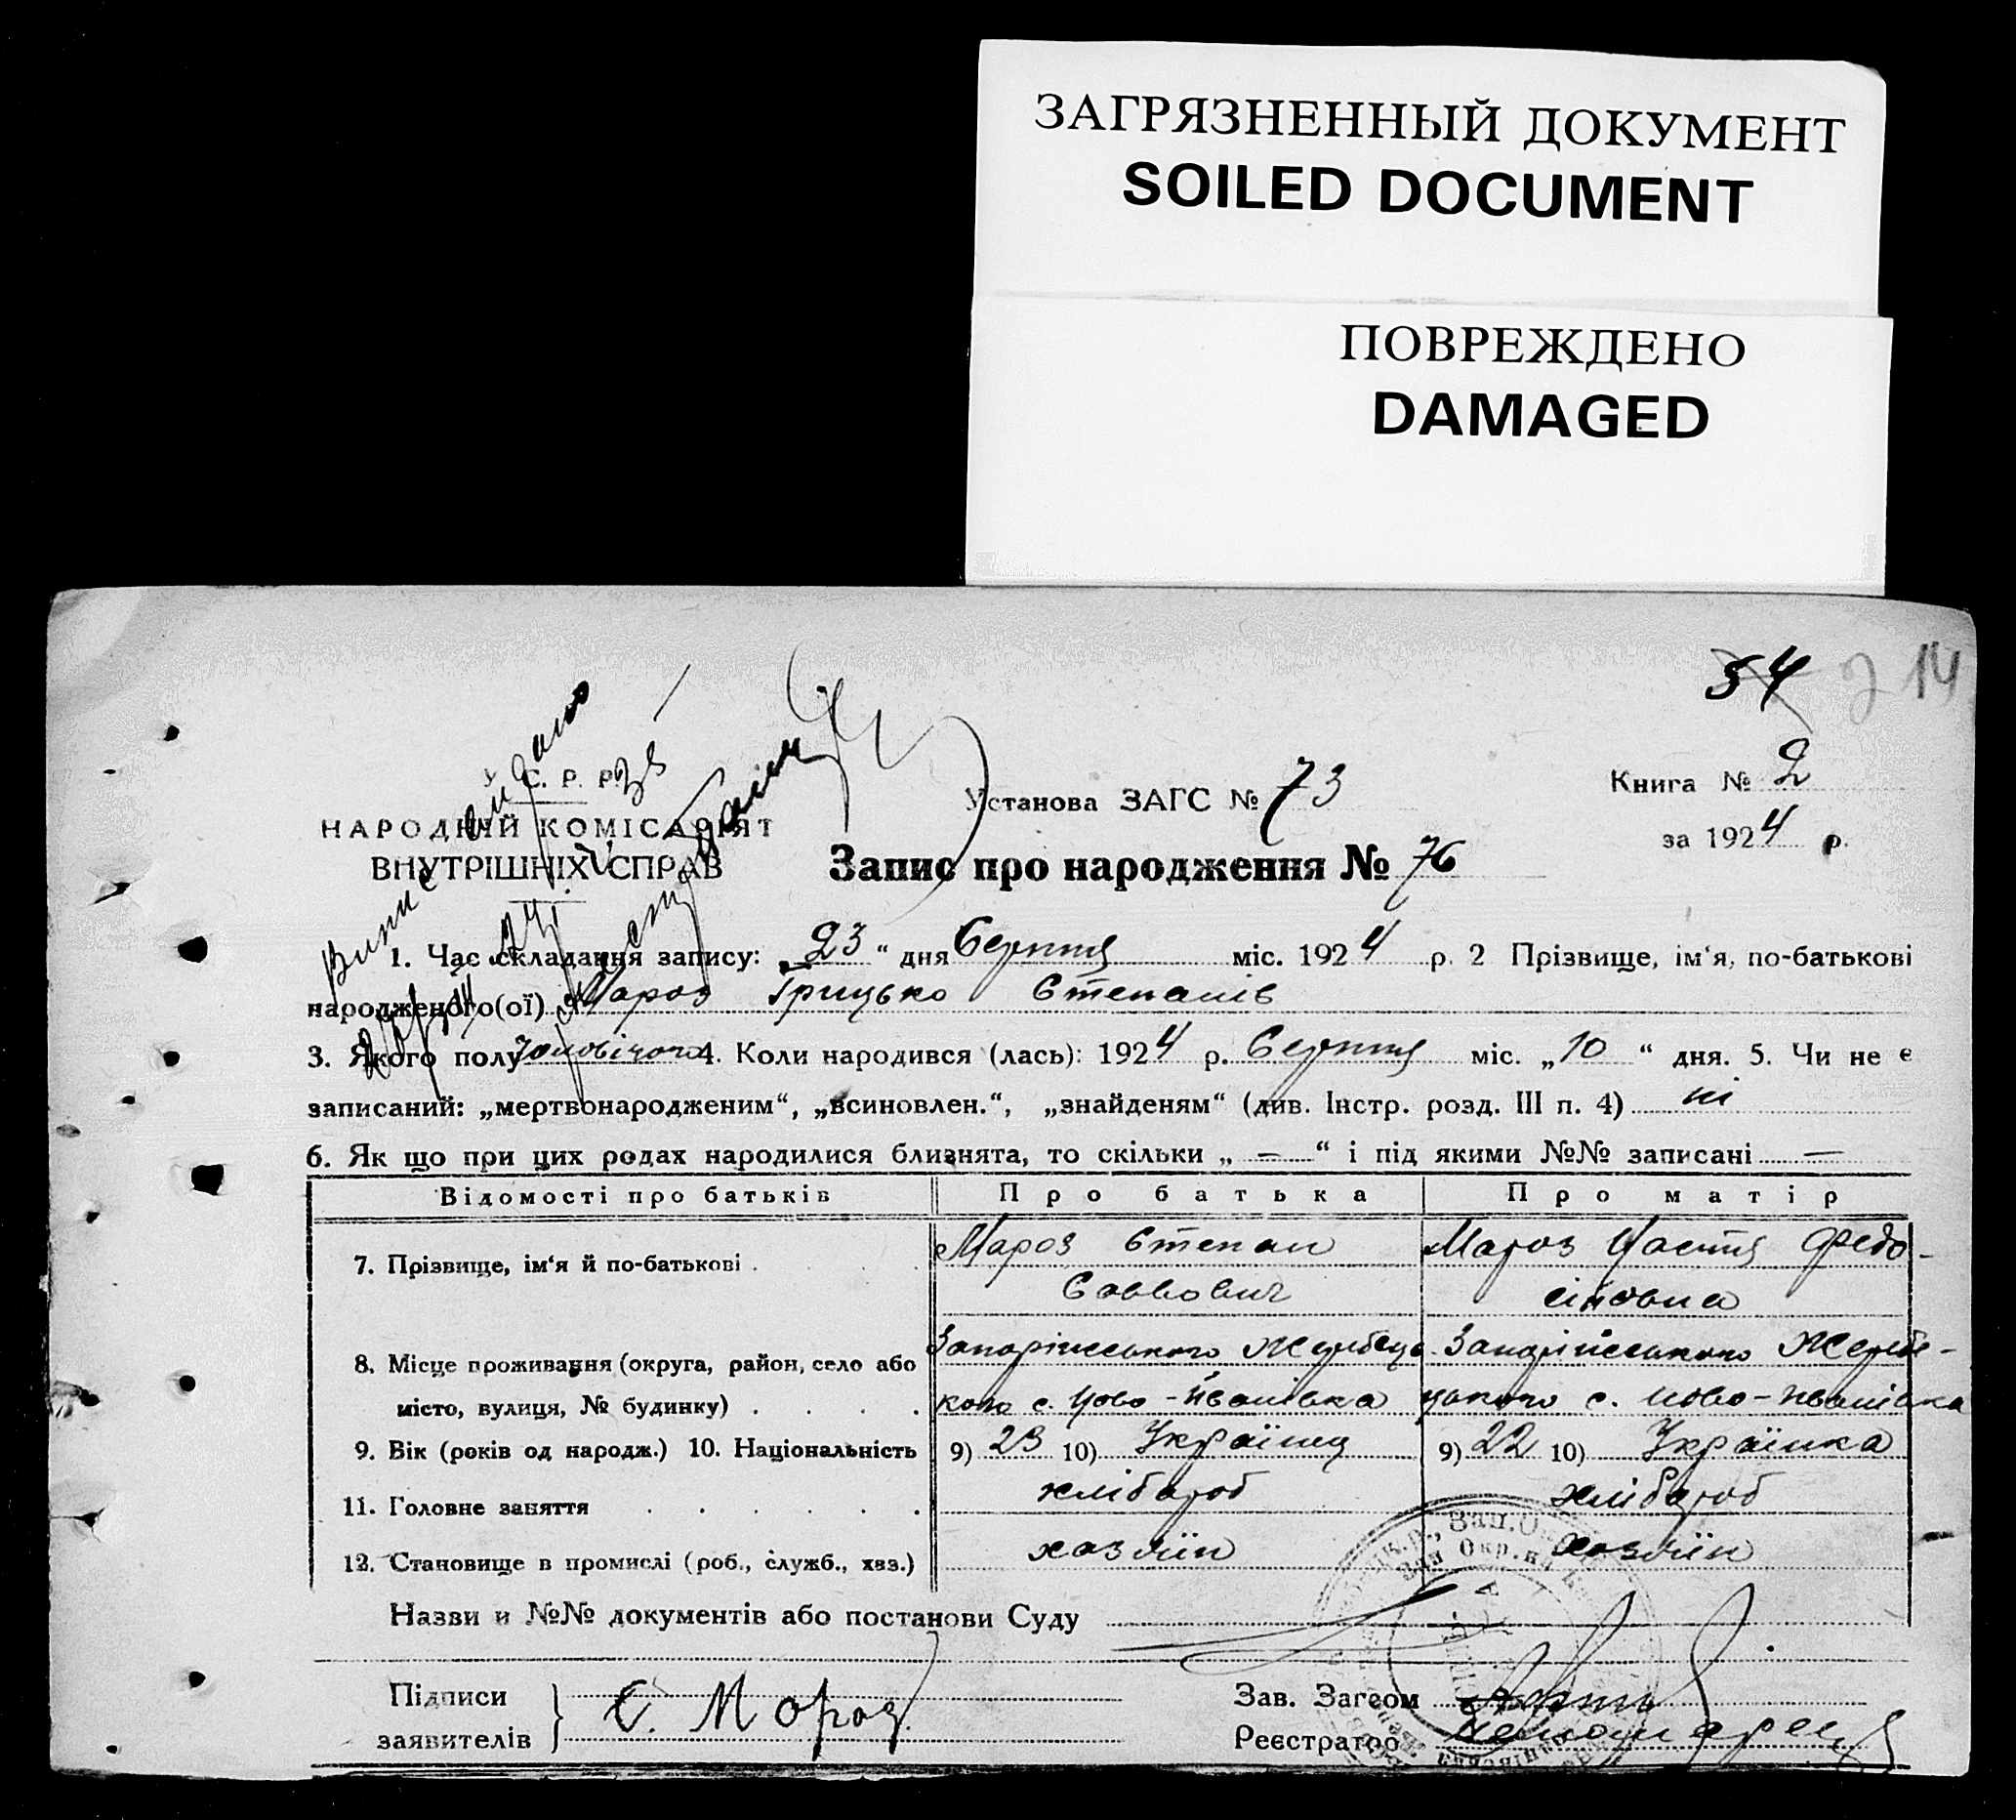 ЗАГРЯЗНЕННЫЙ ДОКУМЕНТ
SOILED DOCUMENT
ПОВРЕЖДЕНО
DAMAGED
54 14
У. С. Р. Р.
НАРОДНІЙ КОМІСАРІЯТ
ВНУТРІШНІХ СПРАВ
Установа ЗАГС № 73
Книга № 2
за 1924 р.
Запис про народження № 76
1. Час складання запису: „23“ дня Серпня міс. 1924 р. 2 Прізвище, ім‘я, по-батькові
народженого(ої) Мароз Грицько Степанів
3. Якого полу чоловічого 4. Коли народився (лась): 1924 р. Серпня міс. „10“ дня. 5. Чи не є
записаний: „мертвонародженим“, „всиновлен.“, „знайденям“ (див. Інстр. розд. III п. 4) ні
6. Як що при цих родах народилися близнята, то скільки „ — “ і під якими №№ записані —
Відомості про батьків Про батька Про матір
7. Прізвище, ім‘я й по-батькові . Мароз Степан Мароз Настя Федо-
Саввович
8. Місце проживання (округа, район, село або Запоріжського Жеребець Запоріжського Жереб-
місто, вулиця, № будинку) . . . . кого с. Ново-Іванівка цького с. Ново-Іванівка
9. Вік (років од народж.) 10. Національність 9) 23 10) Українец 9) 22 10) Українка
11. Головне заняття . . . . . . хлібароб хлібароб
12. Становище в промислі (роб., служб., хвз.) хазяїн хазяїн
Назви и №№ документів або постанови Суду
Підписи
заявителів } С. Мороз
Зав. Загсом
Реєстратор